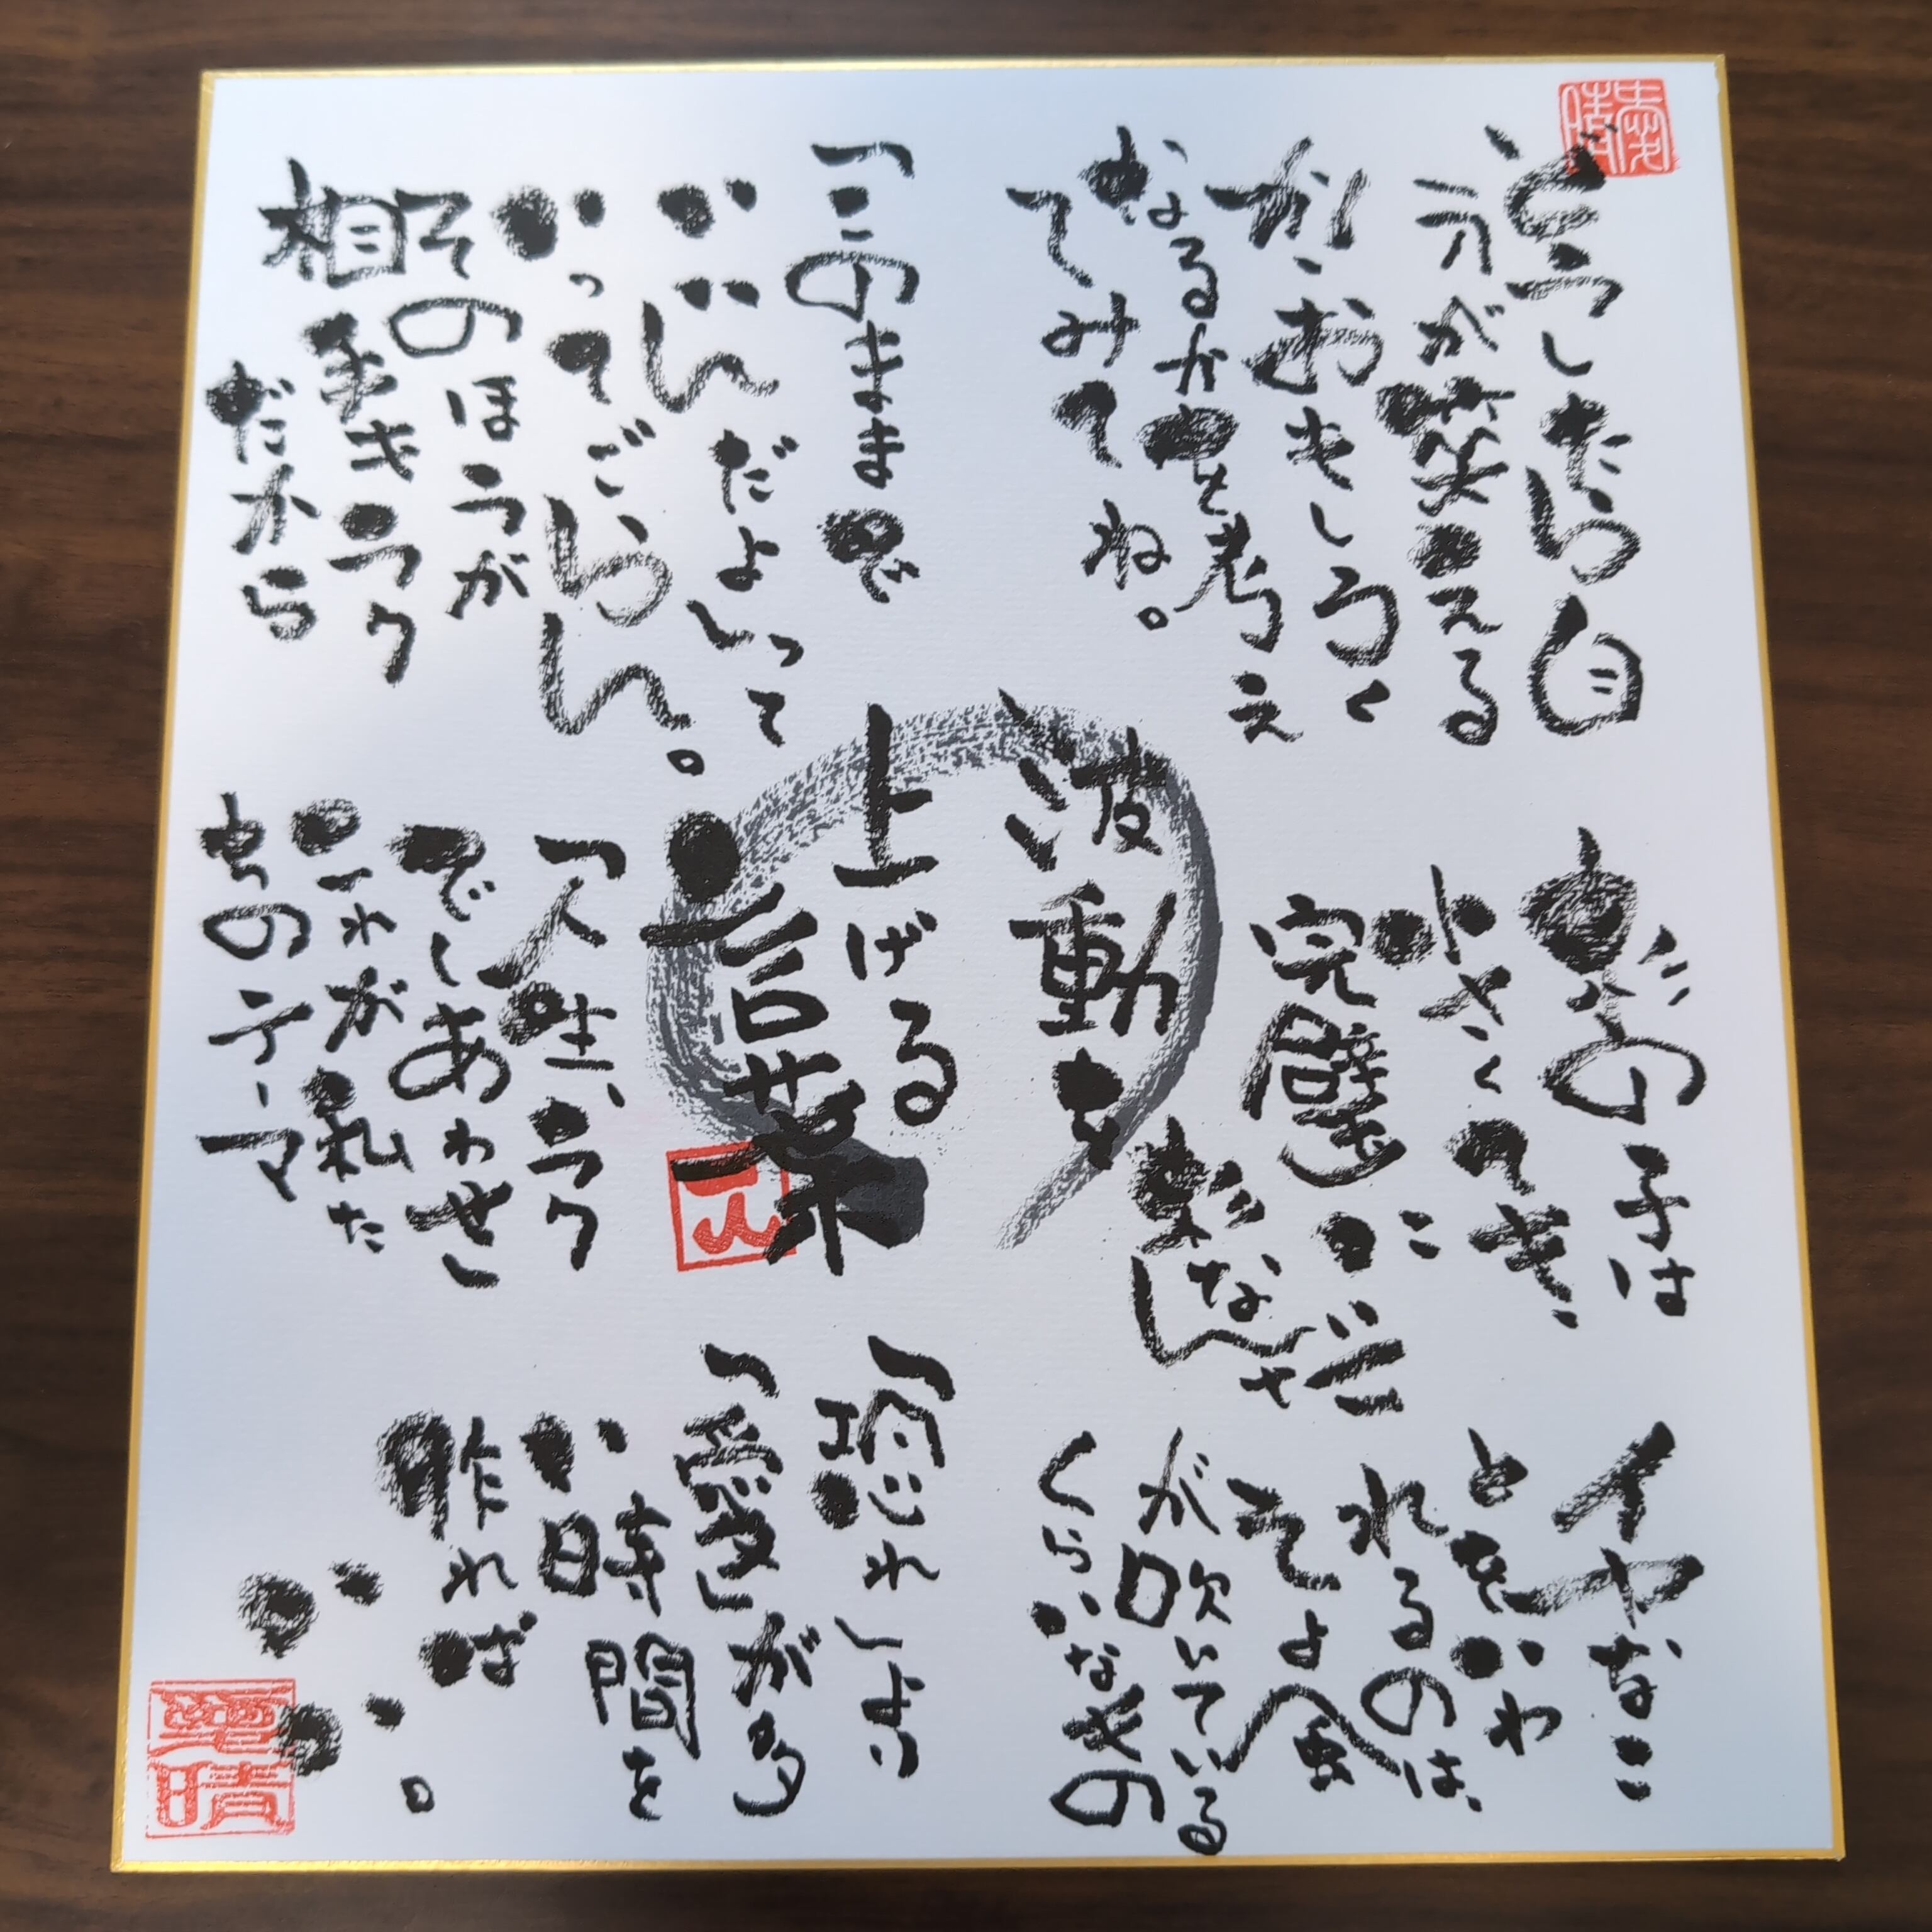 どうしたら自
分が笑える
か、おもしろく
なるかを考え
てみてね。
完璧
イヤなこ
とをいわ
れるのは、
そよ風
が吹いている
くらいなもの
波動を
上げる
言葉
「このままで
いいんだよ」って
いってごらん。
そのほうが
相手もラク
だから
人生、ラク
でしあわせ
これが私た
ちのテーマ
「恐れ」より
「愛」が多
い時間を
作れば
いい。